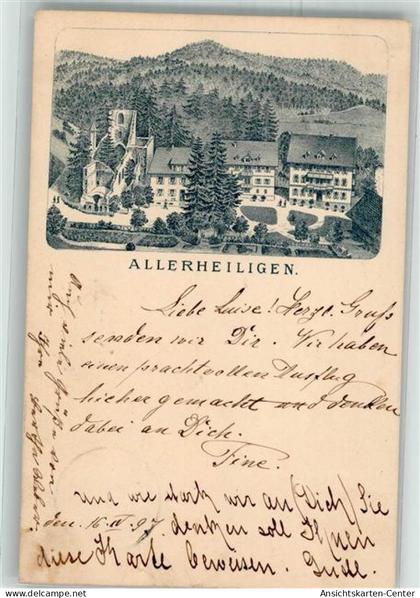 ALLERHEILIGEN.
Liebe Luise! Herzl. Gruß
senden wir Dir. Wir haben
einen prachtvollen Ausflug
hieher gemacht und denken
dabei an Dich.
Fine.
und wie stark wir an (Dich) Sie
den 16. IV. 97. denken soll Ihnen
diese Karte beweisen. Gustl.
Auf viele Grüße von
Ansichtskarten-Center